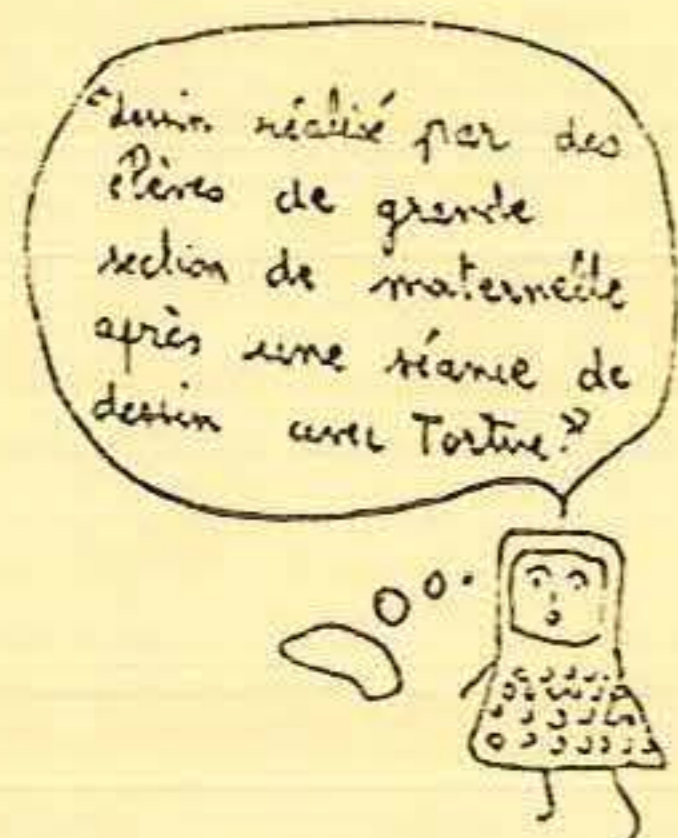 "dessin réalisé par des
élèves de grande
section de maternelle
après une séance de
dessin avec Tortue."